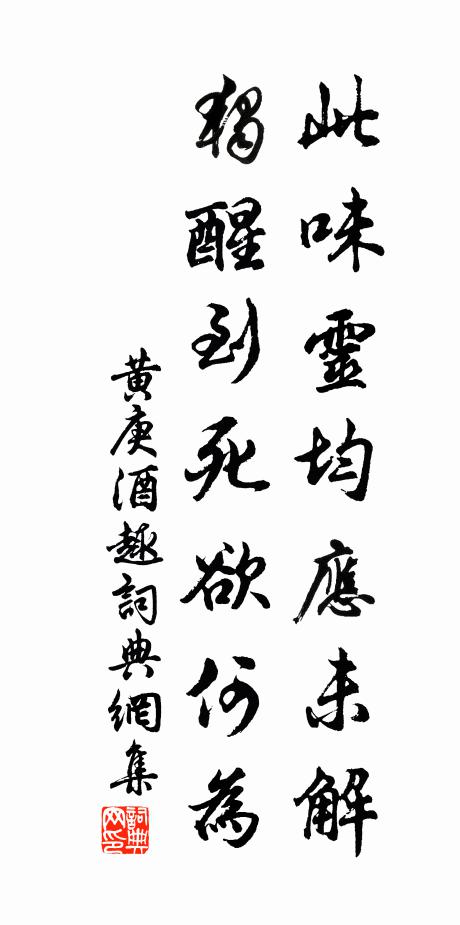 此味靈均應未解
獨醒到死欲何為
黃庚酒趣詞典網集
詞典网印